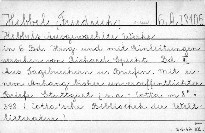 Hebbel, Friedrich,
Hebbels ausgewählte Werke
in 6 Bde. Hrsg. und mit Einleitungen
versehen von Richard Specht. Bd.
Aus Tagebüchern u. Briefen. Mit ei-
nem Anhang bisher unveröffentlichter
Briefe. Stuttgart, Cotta 8°.
398 l. Cotta'sche Bibliothek der Welt-
literatur.